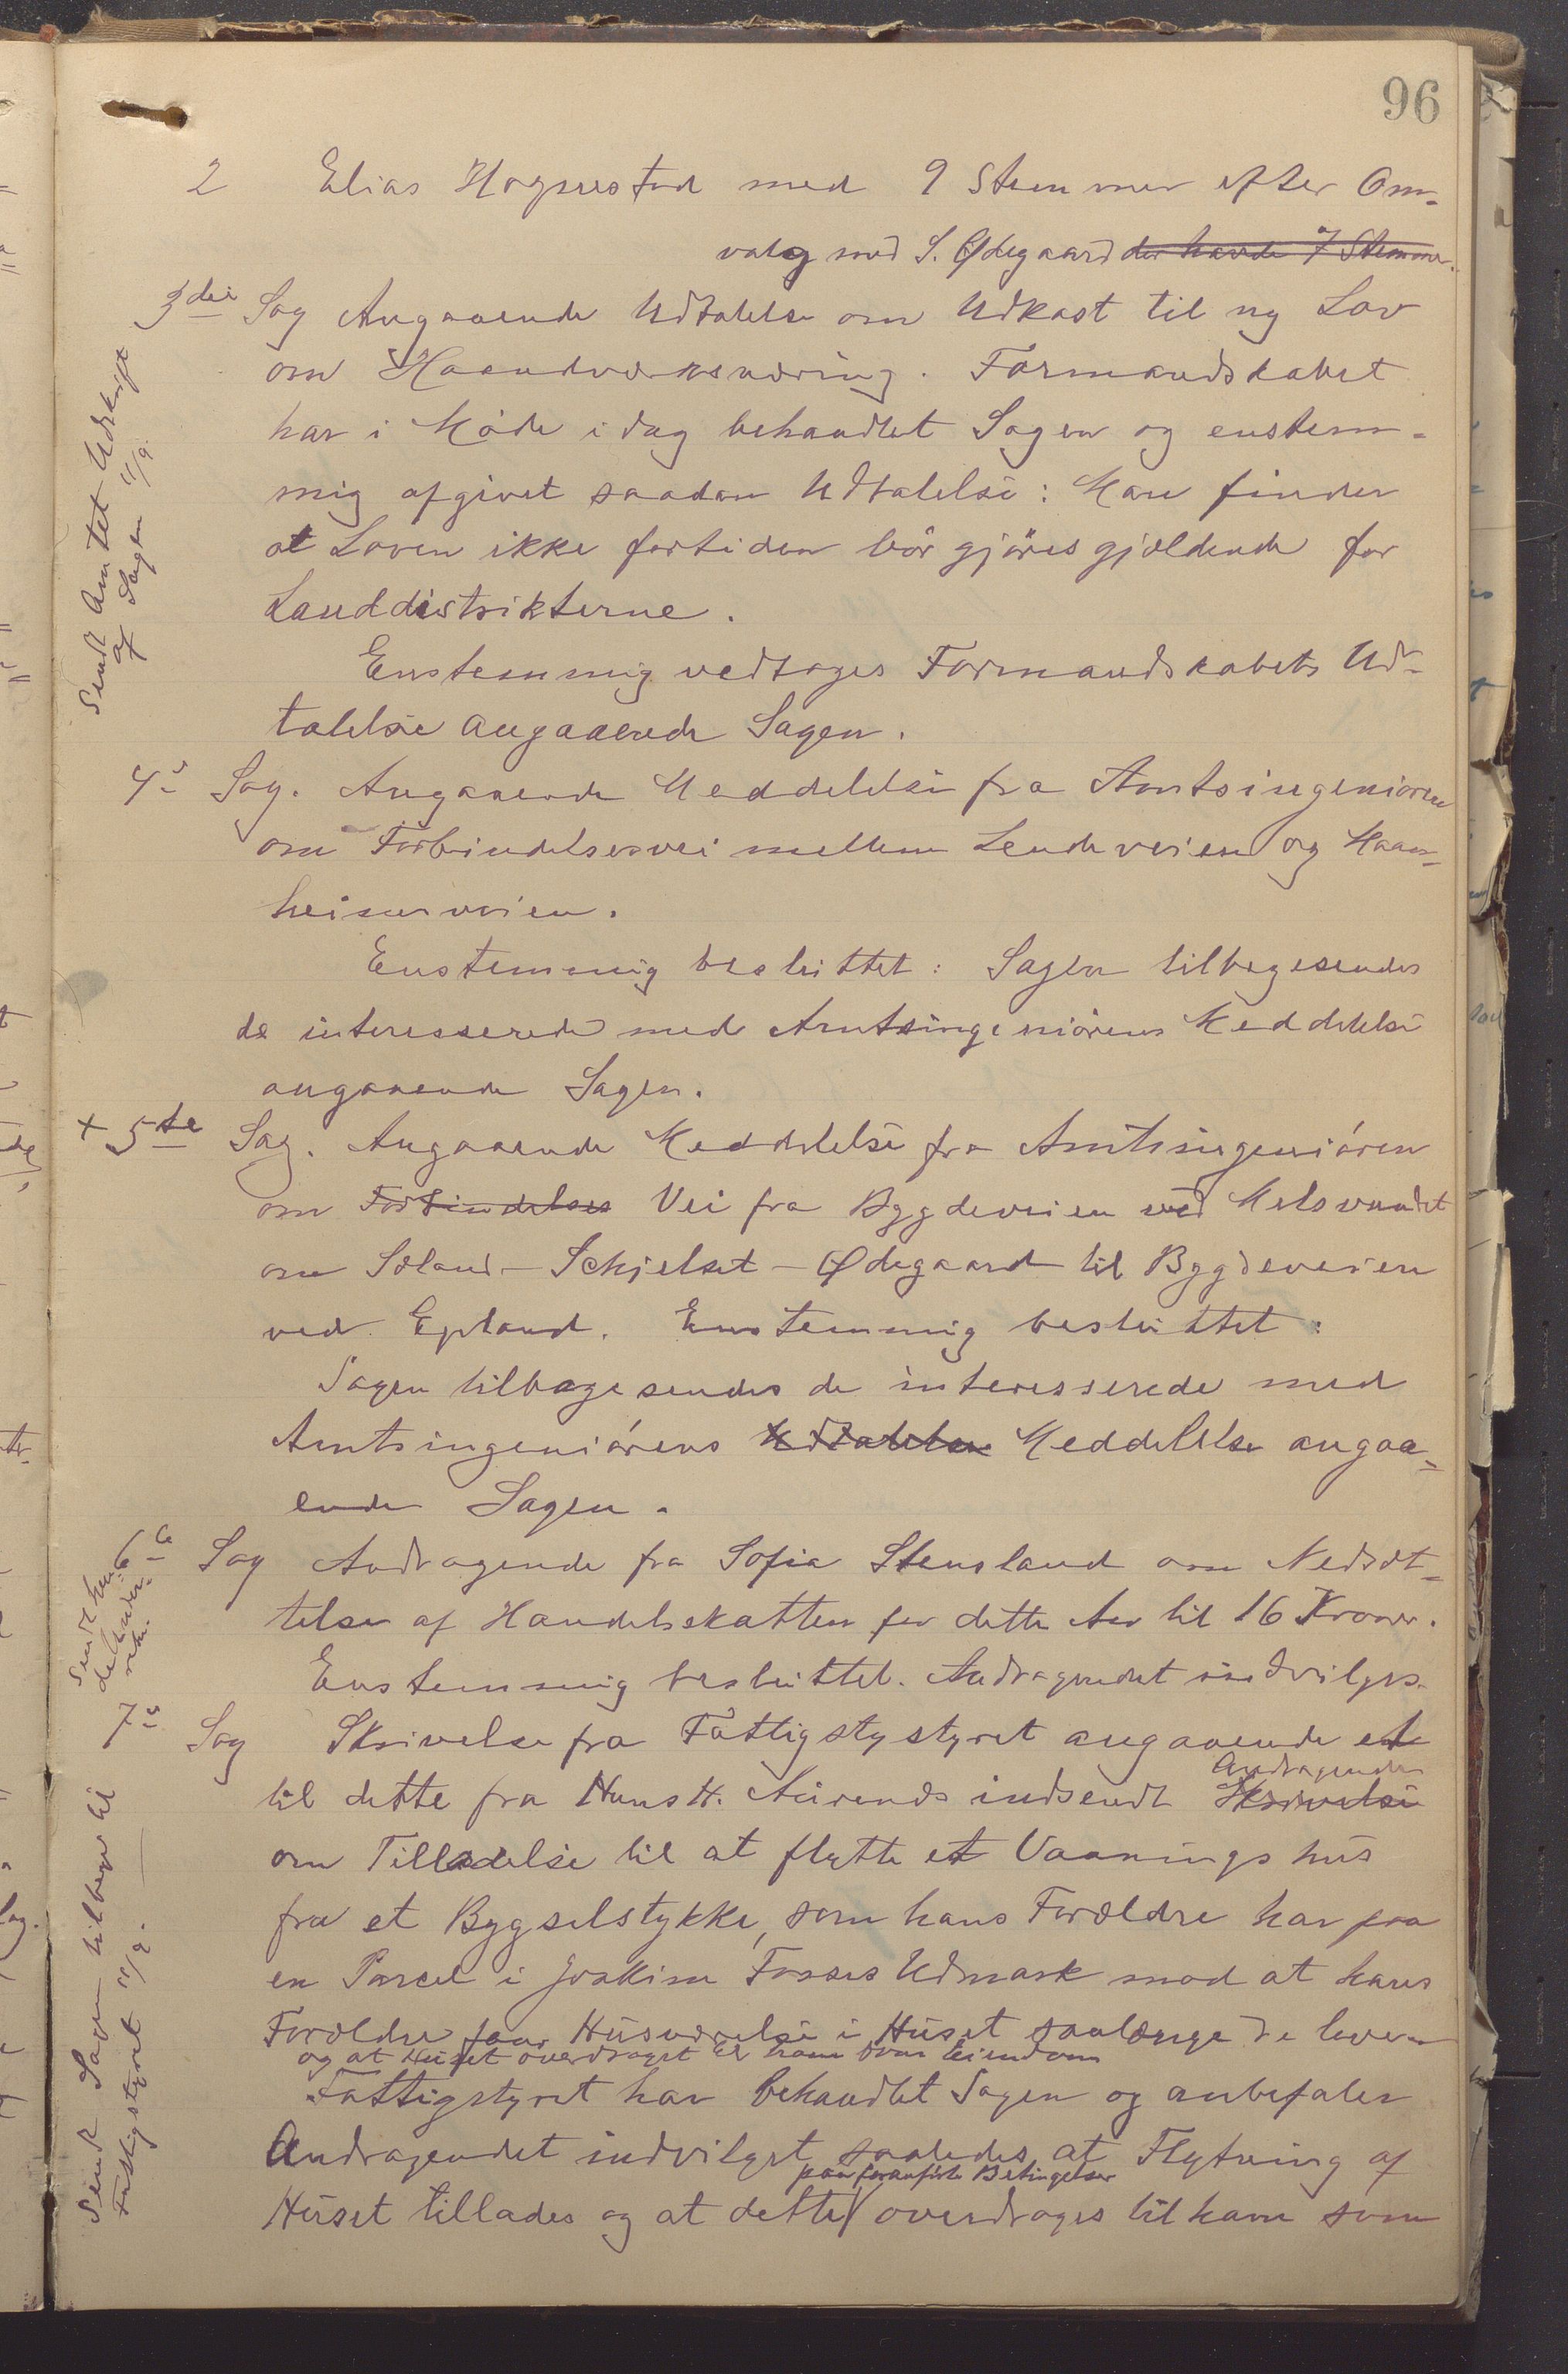 96
2 Elias Hognestad med 9 Stemmer efter Om-
valg med S. Ødegaard der havde 7 Stemmer.
3die Sag Angaaende Udtalelse om Udkast til ny Lov
om Haandværksnæring. Formandskabet
har i Møde idag behandlet Sagen og enstem-
mig afgivet saadan Udtalelse: Man finder
at Loven ikke fortiden bør gjøres gjældende for
Landdistrikterne.
Sendt Amtet Udskrift
af Sagen 11/9.
Enstemmig vedtoges Formandskabets Ud-
talelse angaaende Sagen.
4de Sag. Angaaende Meddelelse fra Amtsingeniøren
om Forbindelsesvei mellem Lendeveien og
heimsveien.
Enstemmig besluttet: Sagen tilbagesendes
de interesserede med Amtsingeniørens Meddelelse
angaaende Sagen.
+ 5te Sag. Angaaende Meddelelse fra Amtsingeniøren
om Forbindelses Vei fra Bygdeveien ved Melsvandet
om Sæland - Schjelset - Ødegaard til Bygdeveien
ved Epland. Enstemmig besluttet:
Sagen tilbagesendes de interesserede med
Amtsingeniørens Udtalelse Meddelelse angaa-
ende Sagen.
6te Sag Andragende fra Sofia Stensland om Nedsæt-
telse af Handelsskatten for dette Aar til 16 Kroner.
Enstemmig besluttet. Andragendet indvilges.
7de Sag Skrivelse fra Fattigstystyret angaaende et
Andragende
til dette fra Hans H. indsendt Skrivelse
om Tilladelse til at flytte et Vaaningshus
fra et Bygselstykke, som hans Forældre har paa
en Parcel i Joakim Fosses Udmark mod at hans
Forældre faar Husværelse i Huset saalænge de lever
og at Huset overdraget til ham som Eiendom
Fattigstyret har behandlet Sagen og anbefaler
Andragendet indvilget saaledes at Flytning af
paa foranførte Betingelser
Huset tillades og at dette overdrages til ham som
Sendt Sagen tilbage til
Fattigstyret 11/9.